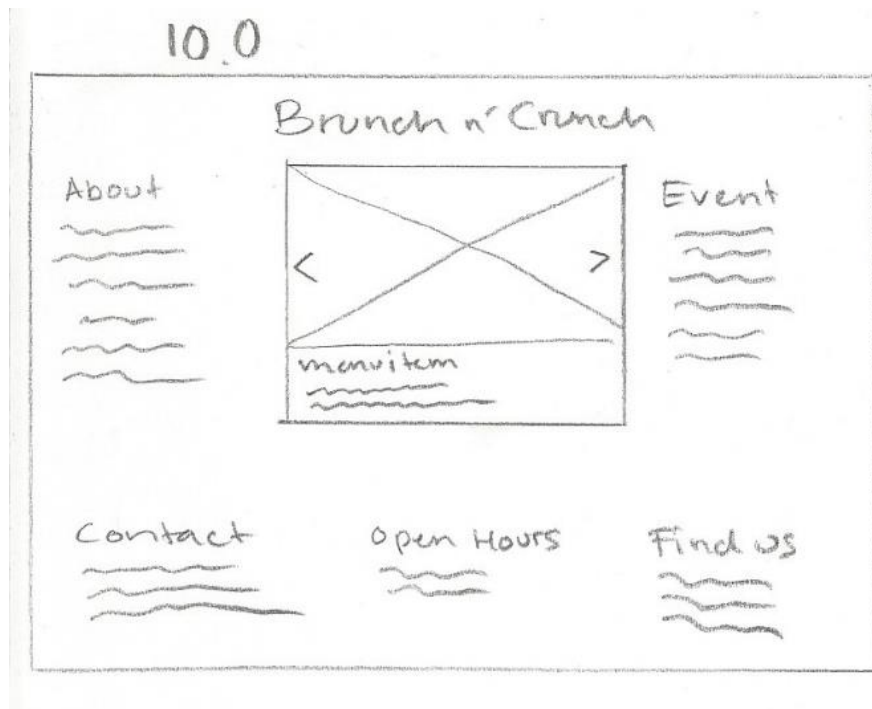 10.0
Brunch n' Crunch
About
Event
<
>
menuitem
Contact
Open Hours
Find us